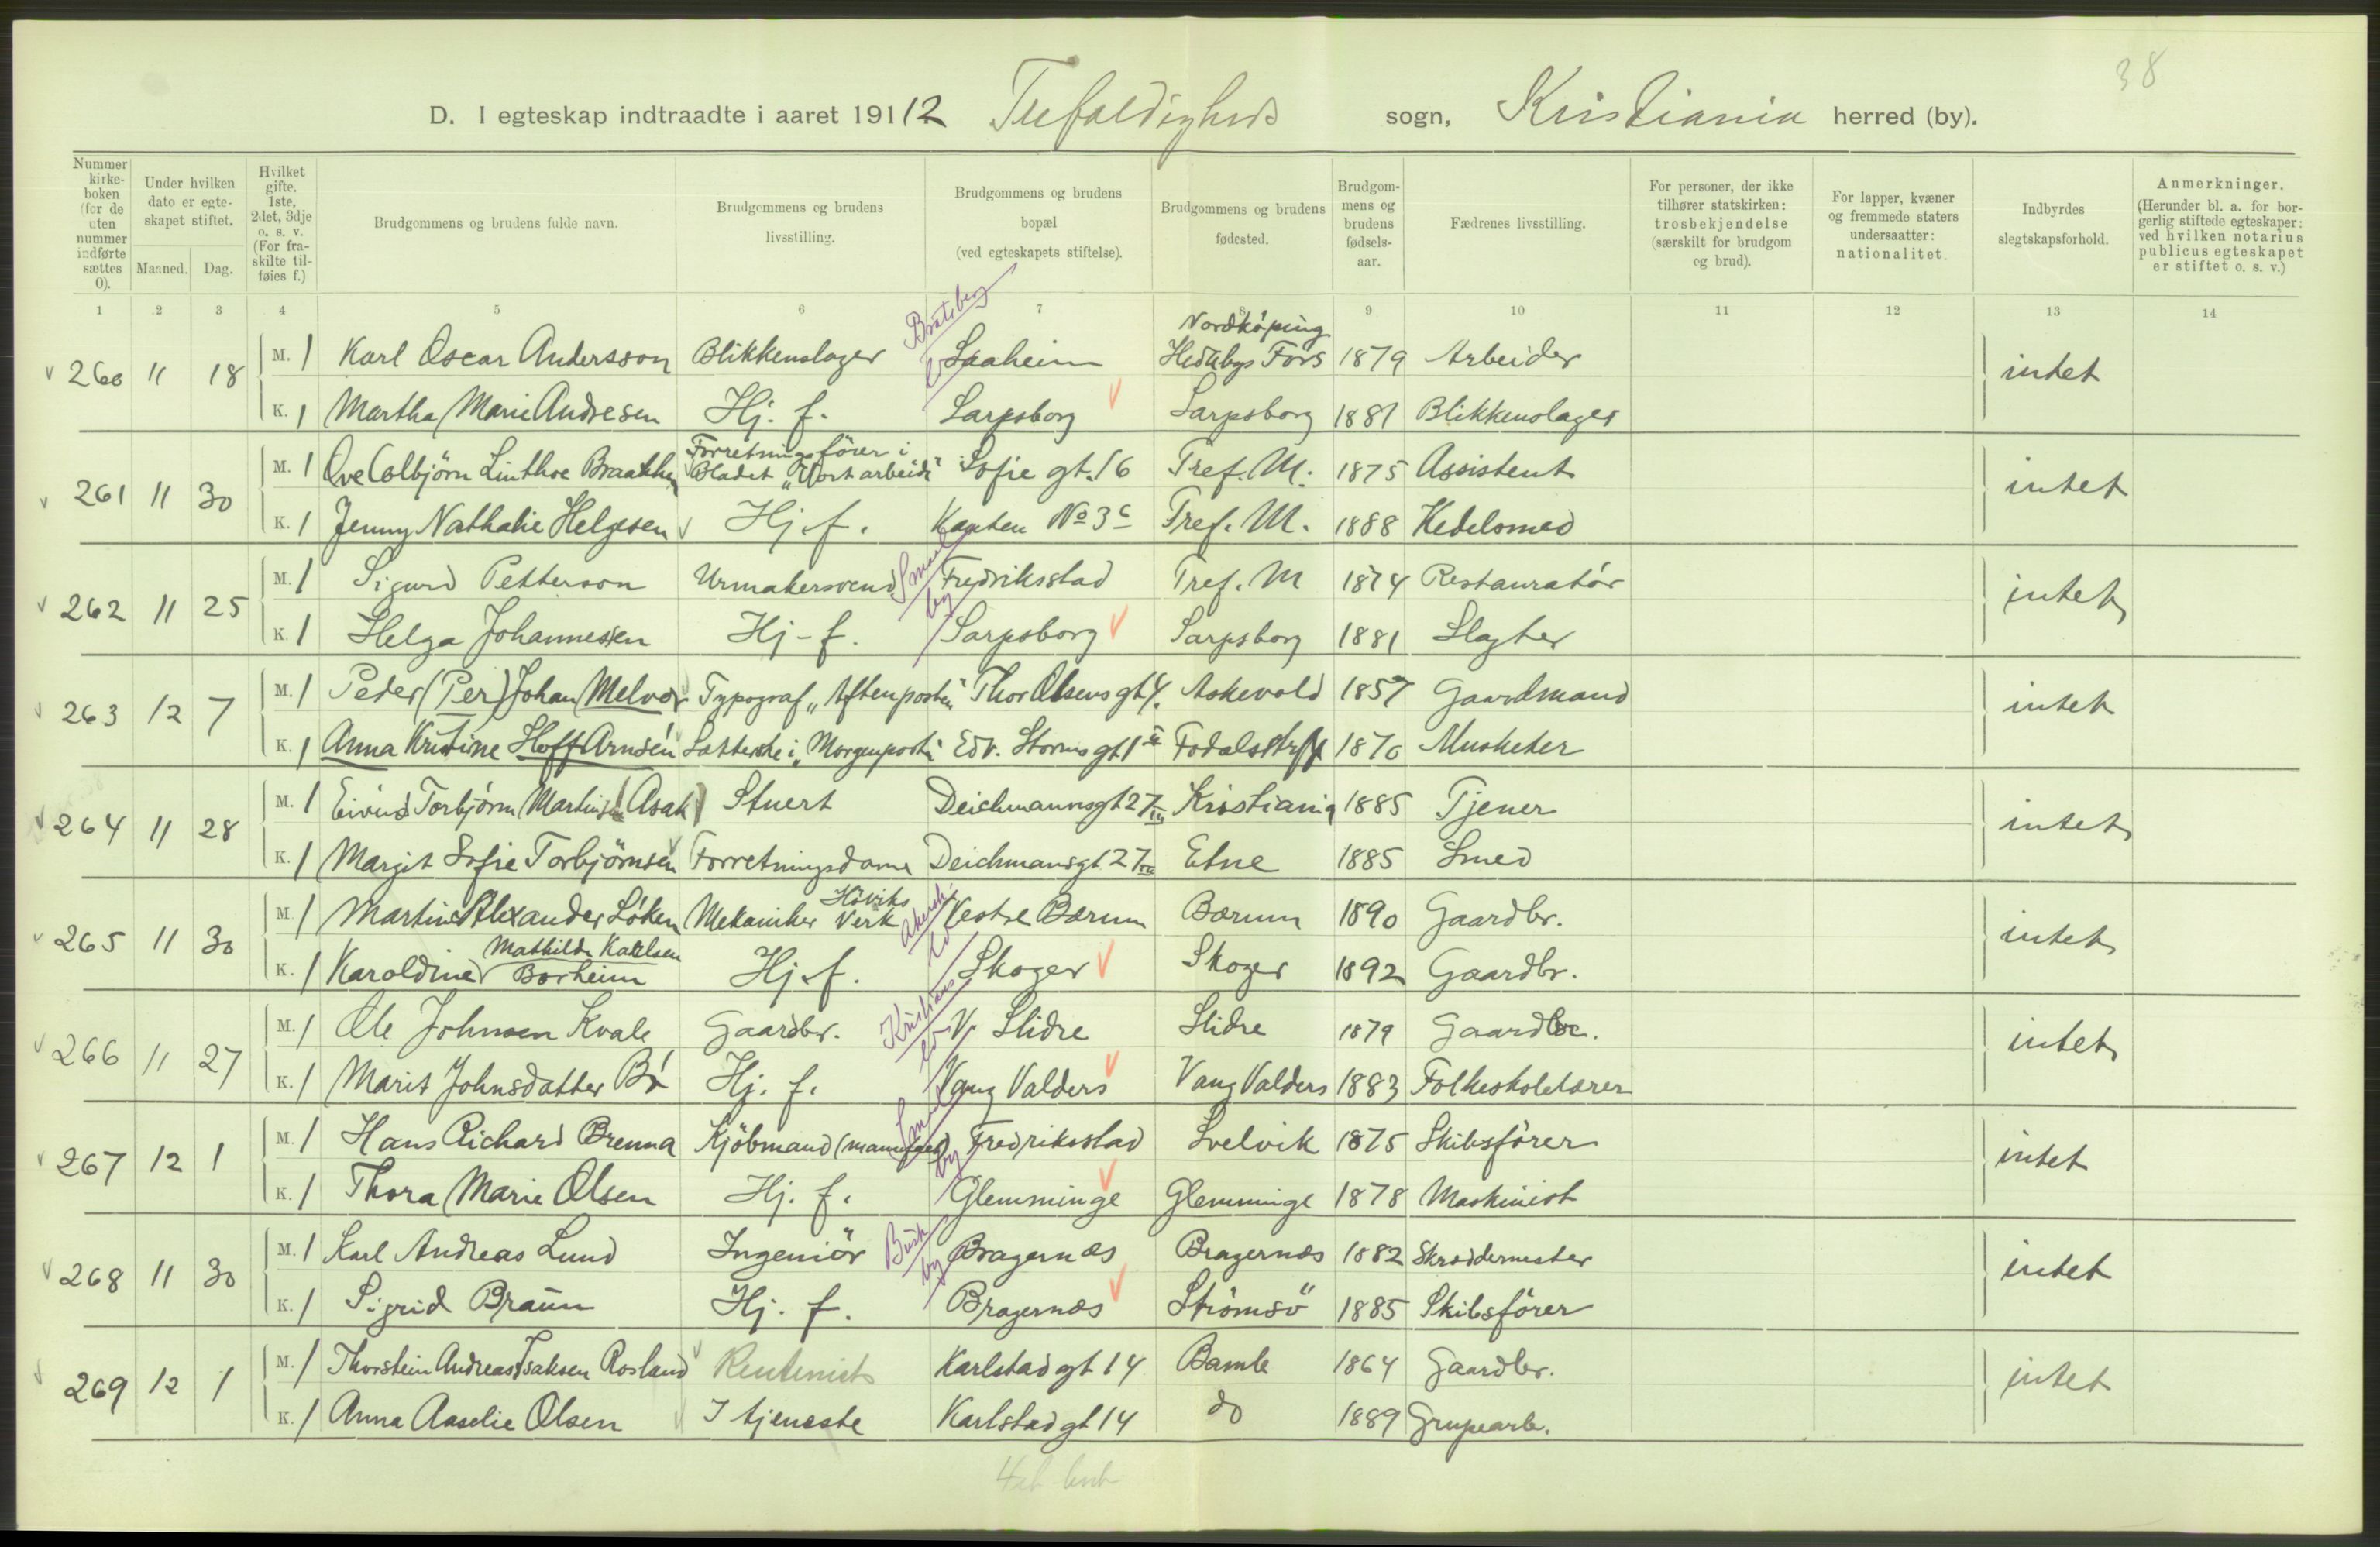 38
D. I egteskap indtraadte i aaret 1911 12 Trefoldigheds sogn, Kristiania herred (by).
Nummer kirkeboken (for de uten nummer indførte sættes 0).
Under hvilken dato er egteskapet stiftet.
Maaned. Dag.
Hvilket gifte. 1ste, 2det, 3dje o. s. v. (For fraskilte tilføies f.)
Brudgommens og brudens fulde navn.
Brudgommens og brudens livsstilling.
Brudgommens og brudens bopæl (ved egteskapets stiftelse).
Brudgommens og brudens fødested.
Brudgommens og brudens fødselsaar.
Fædrenes livsstilling.
For personer, der ikke tilhører statskirken: trosbekjendelse (særskilt for brudgom og brud).
For lapper, kvæner og fremmede staters undersaatter: nationalitet.
Indbyrdes slegtskapsforhold.
Anmerkninger. (Herunder bl. a. for borgerlig stiftede egteskaper: ved hvilken notarius publicus egteskapet er stiftet o. s. v.)
1 2 3 4 5 6 7 8 9 10 11 12 13 14
260 11 18 M. 1 Karl Oscar Andersson Blikkenslager Bratsberg Saaheim Nordköping Hedebys Fors 1879 Arbeider intet
K. 1 Martha Marie Andresen Hj. f. Sarpsborg Sarpsborg 1881 Blikkenslager
261 11 30 M. 1 Ove Colbjörn Linthoe Braathen Forretningsfører i Bladet "Vort arbeide" Sofie gt. 16 Tref. M. 1875 Assistent intet
K. 1 Jenny Nathalie Helgesen Hj. f. Kanten No 3c Tref. M. 1888 Kedelsmed
262 11 25 M. 1 Sigurd Petterson Urmakersvend Smaal by Fredriksstad Tref. M 1874 Restauratór intet
K. 1 Helga Johannessen Hj-f. Sarpsborg Sarpsborg 1881 Slagter
263 12 7 M. 1 Peder (Per) Johan Melvær Typograf "Aftenposten" Thor Olsens gt 4. Askevold 1857 Gaardmand intet
K. 1 Anna Kristine Hoff Arnsén Sætterske i "Morgenposten" Edv. Storms gt 1 Fodalsstrøk 1870 Musketer
264 11 28 M. 1 Eivind Torbjørn Martinsen (Asak) Stuert Deichmannsgt 27 III Kristiania 1885 Tjener intet
K. 1 Margit Sofie Torbjörnsen Forretningsdame Deichmansgt 27 III Etne 1885 Smed
265 11 30 M. 1 Martin Alexander Løken Mekaniker Høviks Verk Akersh. ld Vestre Bærum Bærum 1890 Gaardbr. intet
K. 1 Karoldine Mathilde Karlsen Borheim Hj. f. Skoger Skoger 1892 Gaardbr.
266 11 27 M. 1 Ole Johnsen Kvale Gaardbr. Kristians ld V. Slidre Slidre 1879 Gaardbr. intet
K. 1 Marit Johnsdatter Bø Hj. f. Vang Valders Vang Valders 1883 Folkeskolelærer
267 12 1 M. 1 Hans Richard Brenna Kjöbmand (manufakt) Smaal by Fredriksstad Svelvik 1875 Skibsfører intet
K. 1 Thora Marie Olsen Hj. f. Glemminge Glemminge 1878 Maskinist
268 11 30 M. 1 Karl Andreas Lund Ingeniör Busk by Bragernæs Bragernæs 1882 Skræddermester intet
K. 1 Sigrid Braun Hj. f. Bragernæs Strömsö 1885 Skibsfører
269 12 1 M. 1 Thorstein Andreas Isaksen Rosland Rentenist Karlstad gt 14 Bamle 1864 Gaardbr. intet
K. 1 Anna Aaselie Olsen I tjeneste Karlstad gt 14 do 1889 Grupearb.